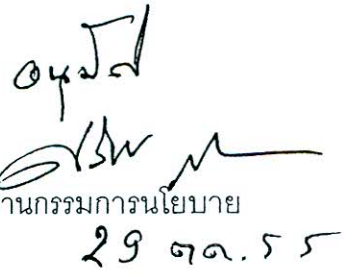 อนุมัติ
านกรรมการนโยบาย
29 ตค. 55